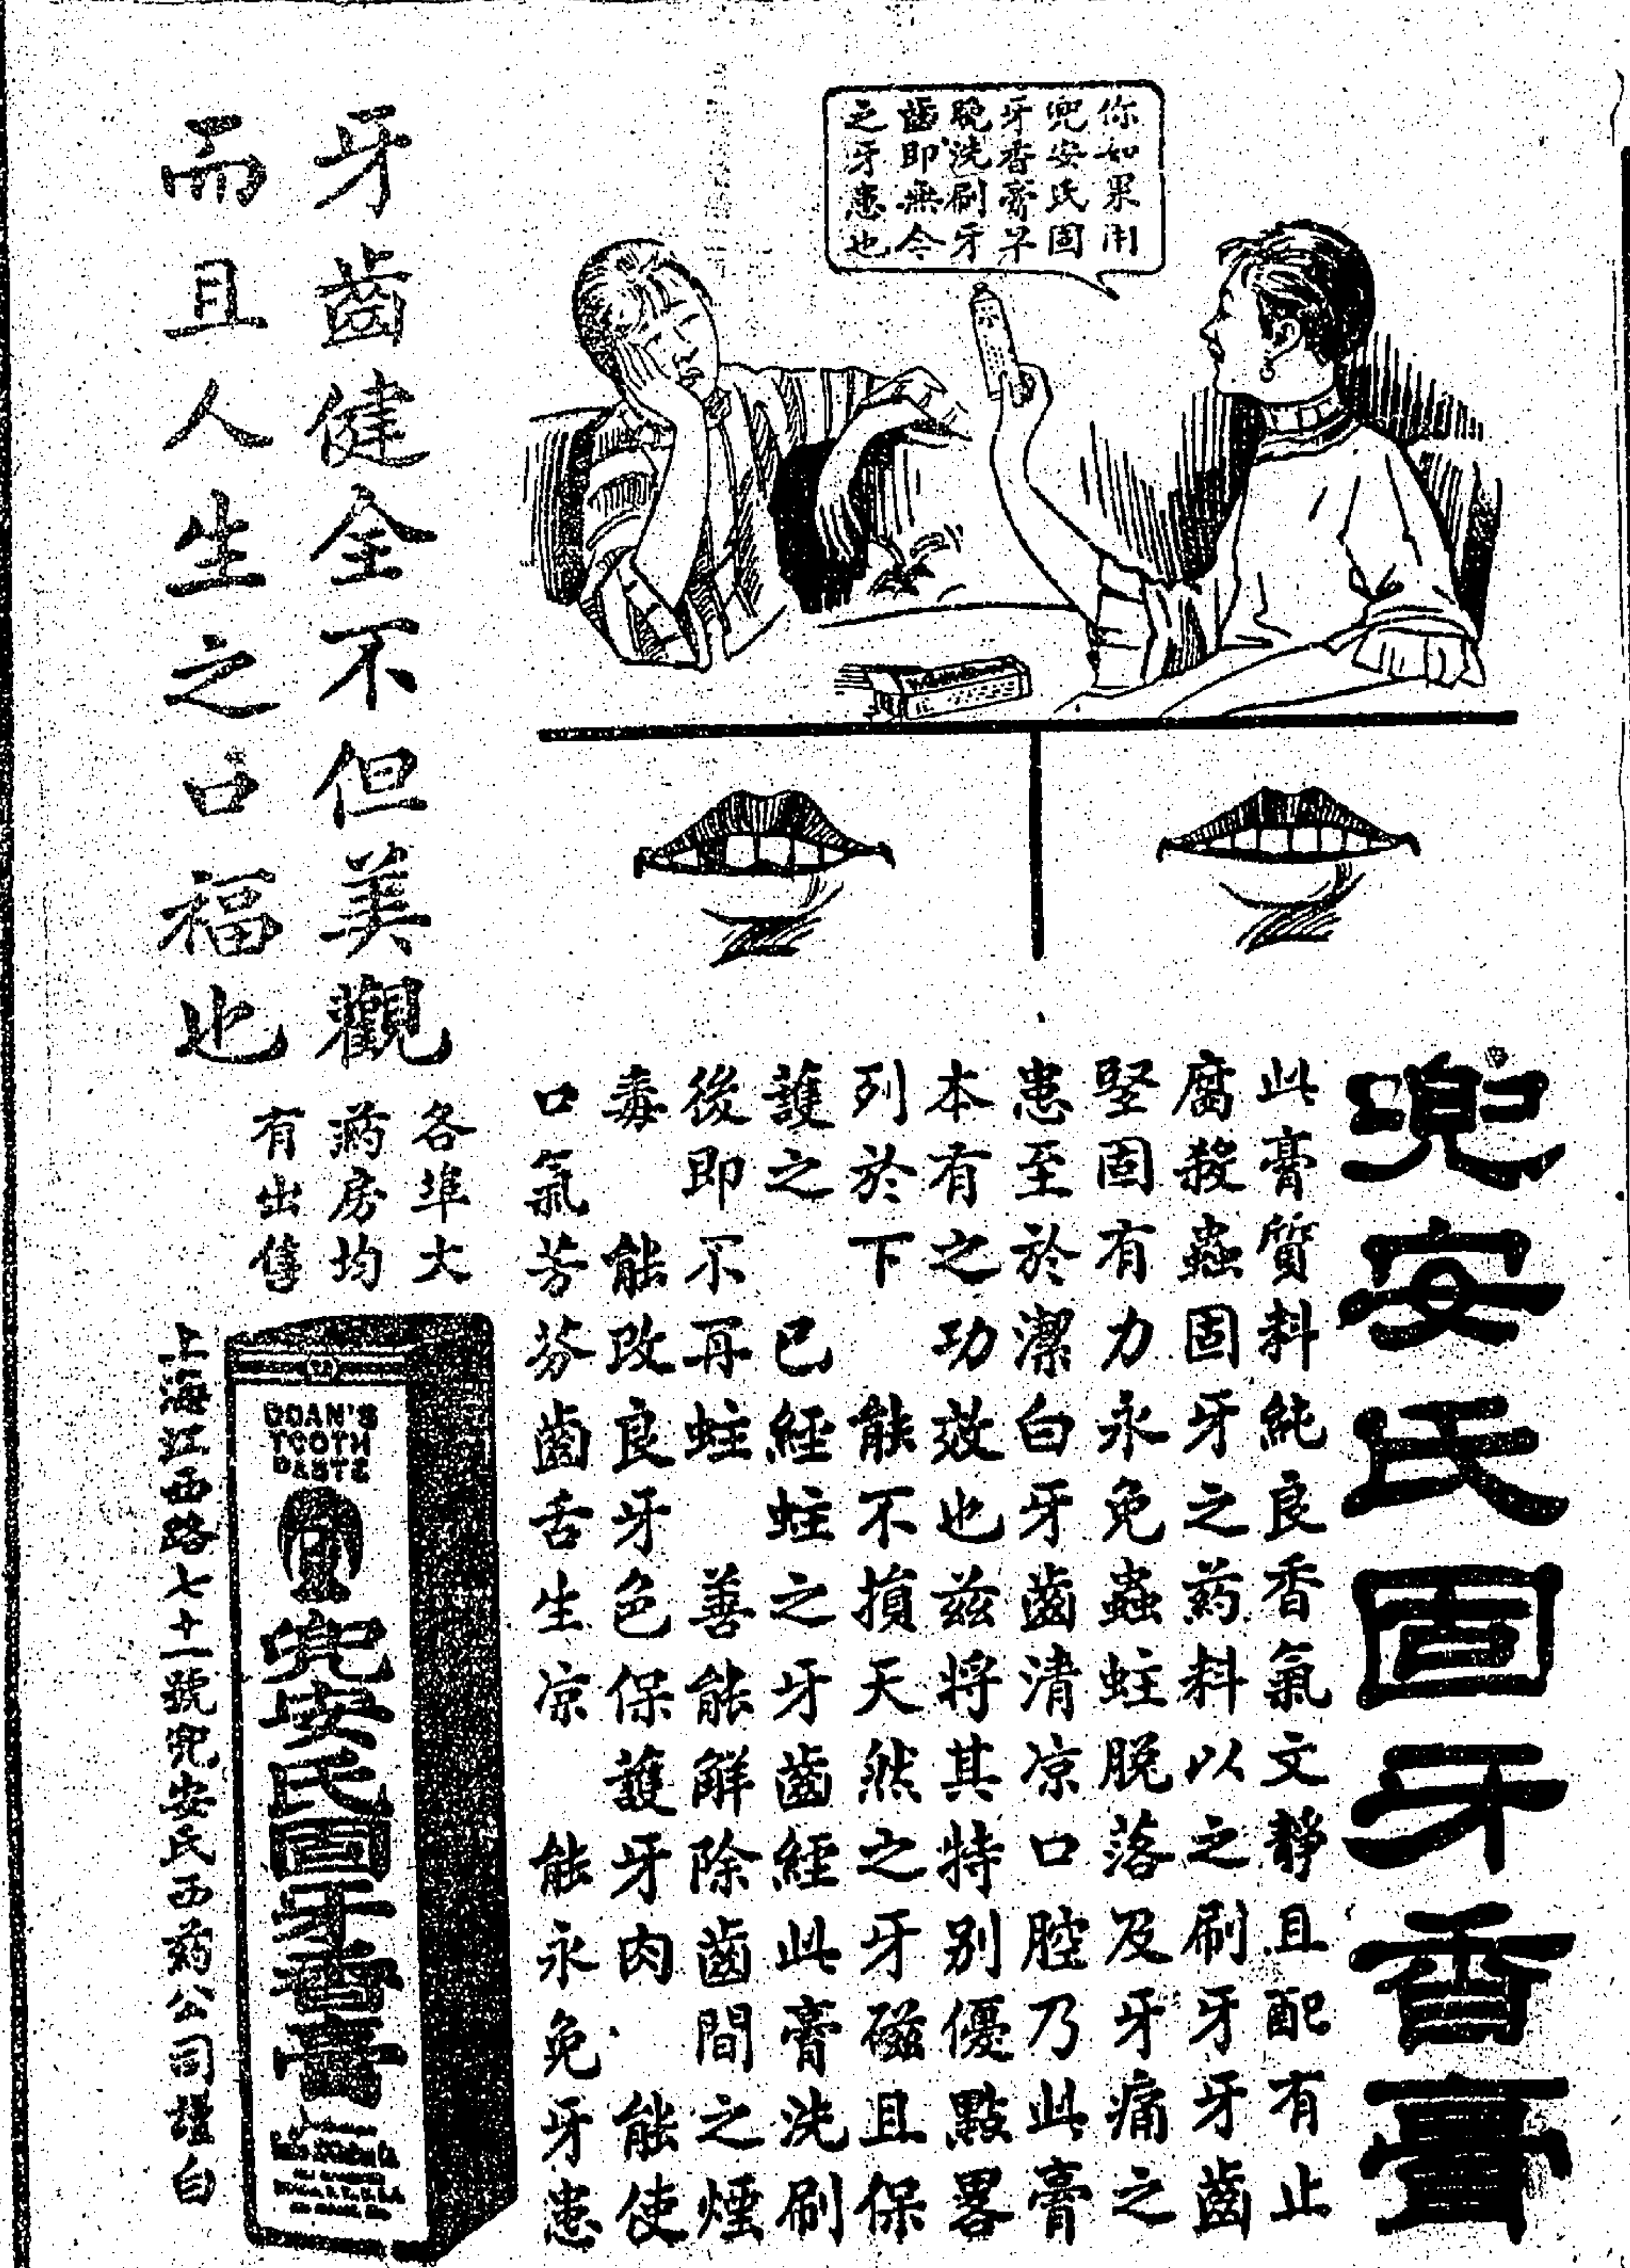 你如果用
兜安氏固
牙香膏早
晚洗刷牙
齒即無今
之牙患也
兜安氏固牙香膏
此膏質料純良香氣文靜且配有止
腐殺蟲固牙之药料以之刷牙牙齒
堅固有力永免蟲蛀脫落及牙痛之
患至於潔白牙齒清凉口腔乃此膏
本有之功效也兹將其特別優點畧
列於下 能不損天然之牙磁且保
護之 已經蛀之牙齒經此膏洗刷
後即不再蛀 善能解除齒間之煙
毒 能改良牙色保護牙肉 能使
口氣芳芬齒舌生凉 能永免牙患
牙齒健全不但美觀
而且人生之口福也
各埠大
药房均
有出售
DOAN'S
TOOTH
PASTE
兜安氏固牙香膏
上海江西路七十一號兜安氏西药公司謹白